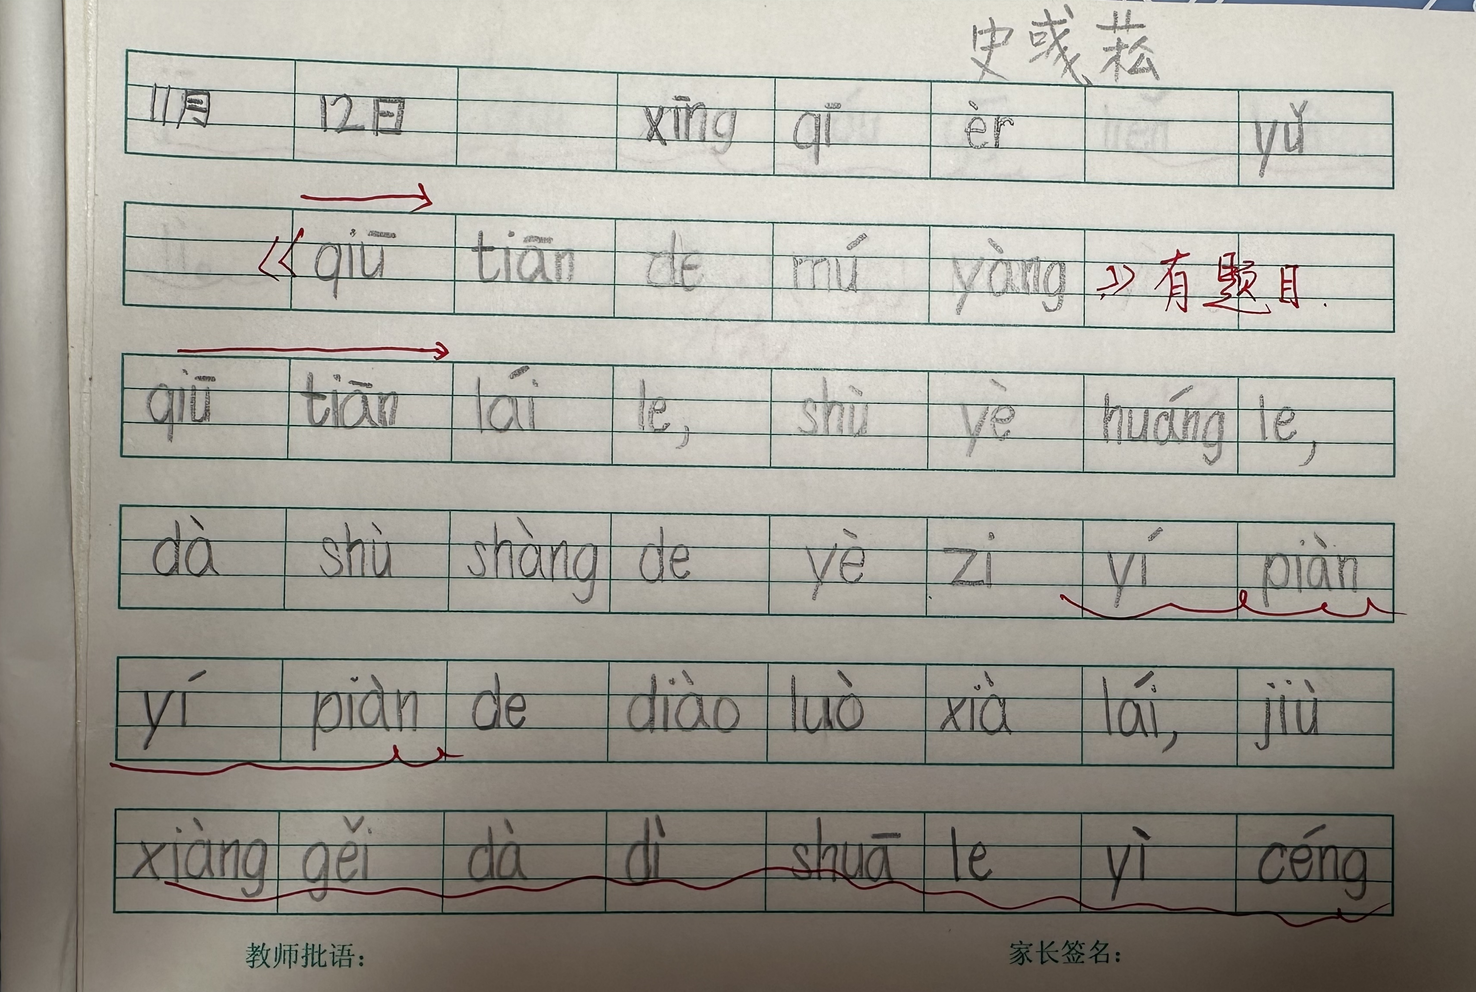 史彧菘
11月 12日 xīng qī èr yǔ
《qiū tiān de mú yàng》有题目.
qiū tiān lái le, shù yè huáng le,
dà shù shàng de yè zi yí piàn
yí piàn de diào luò xià lái, jiù
xiàng gěi dà dì shuā le yì céng
教师批语: 家长签名: